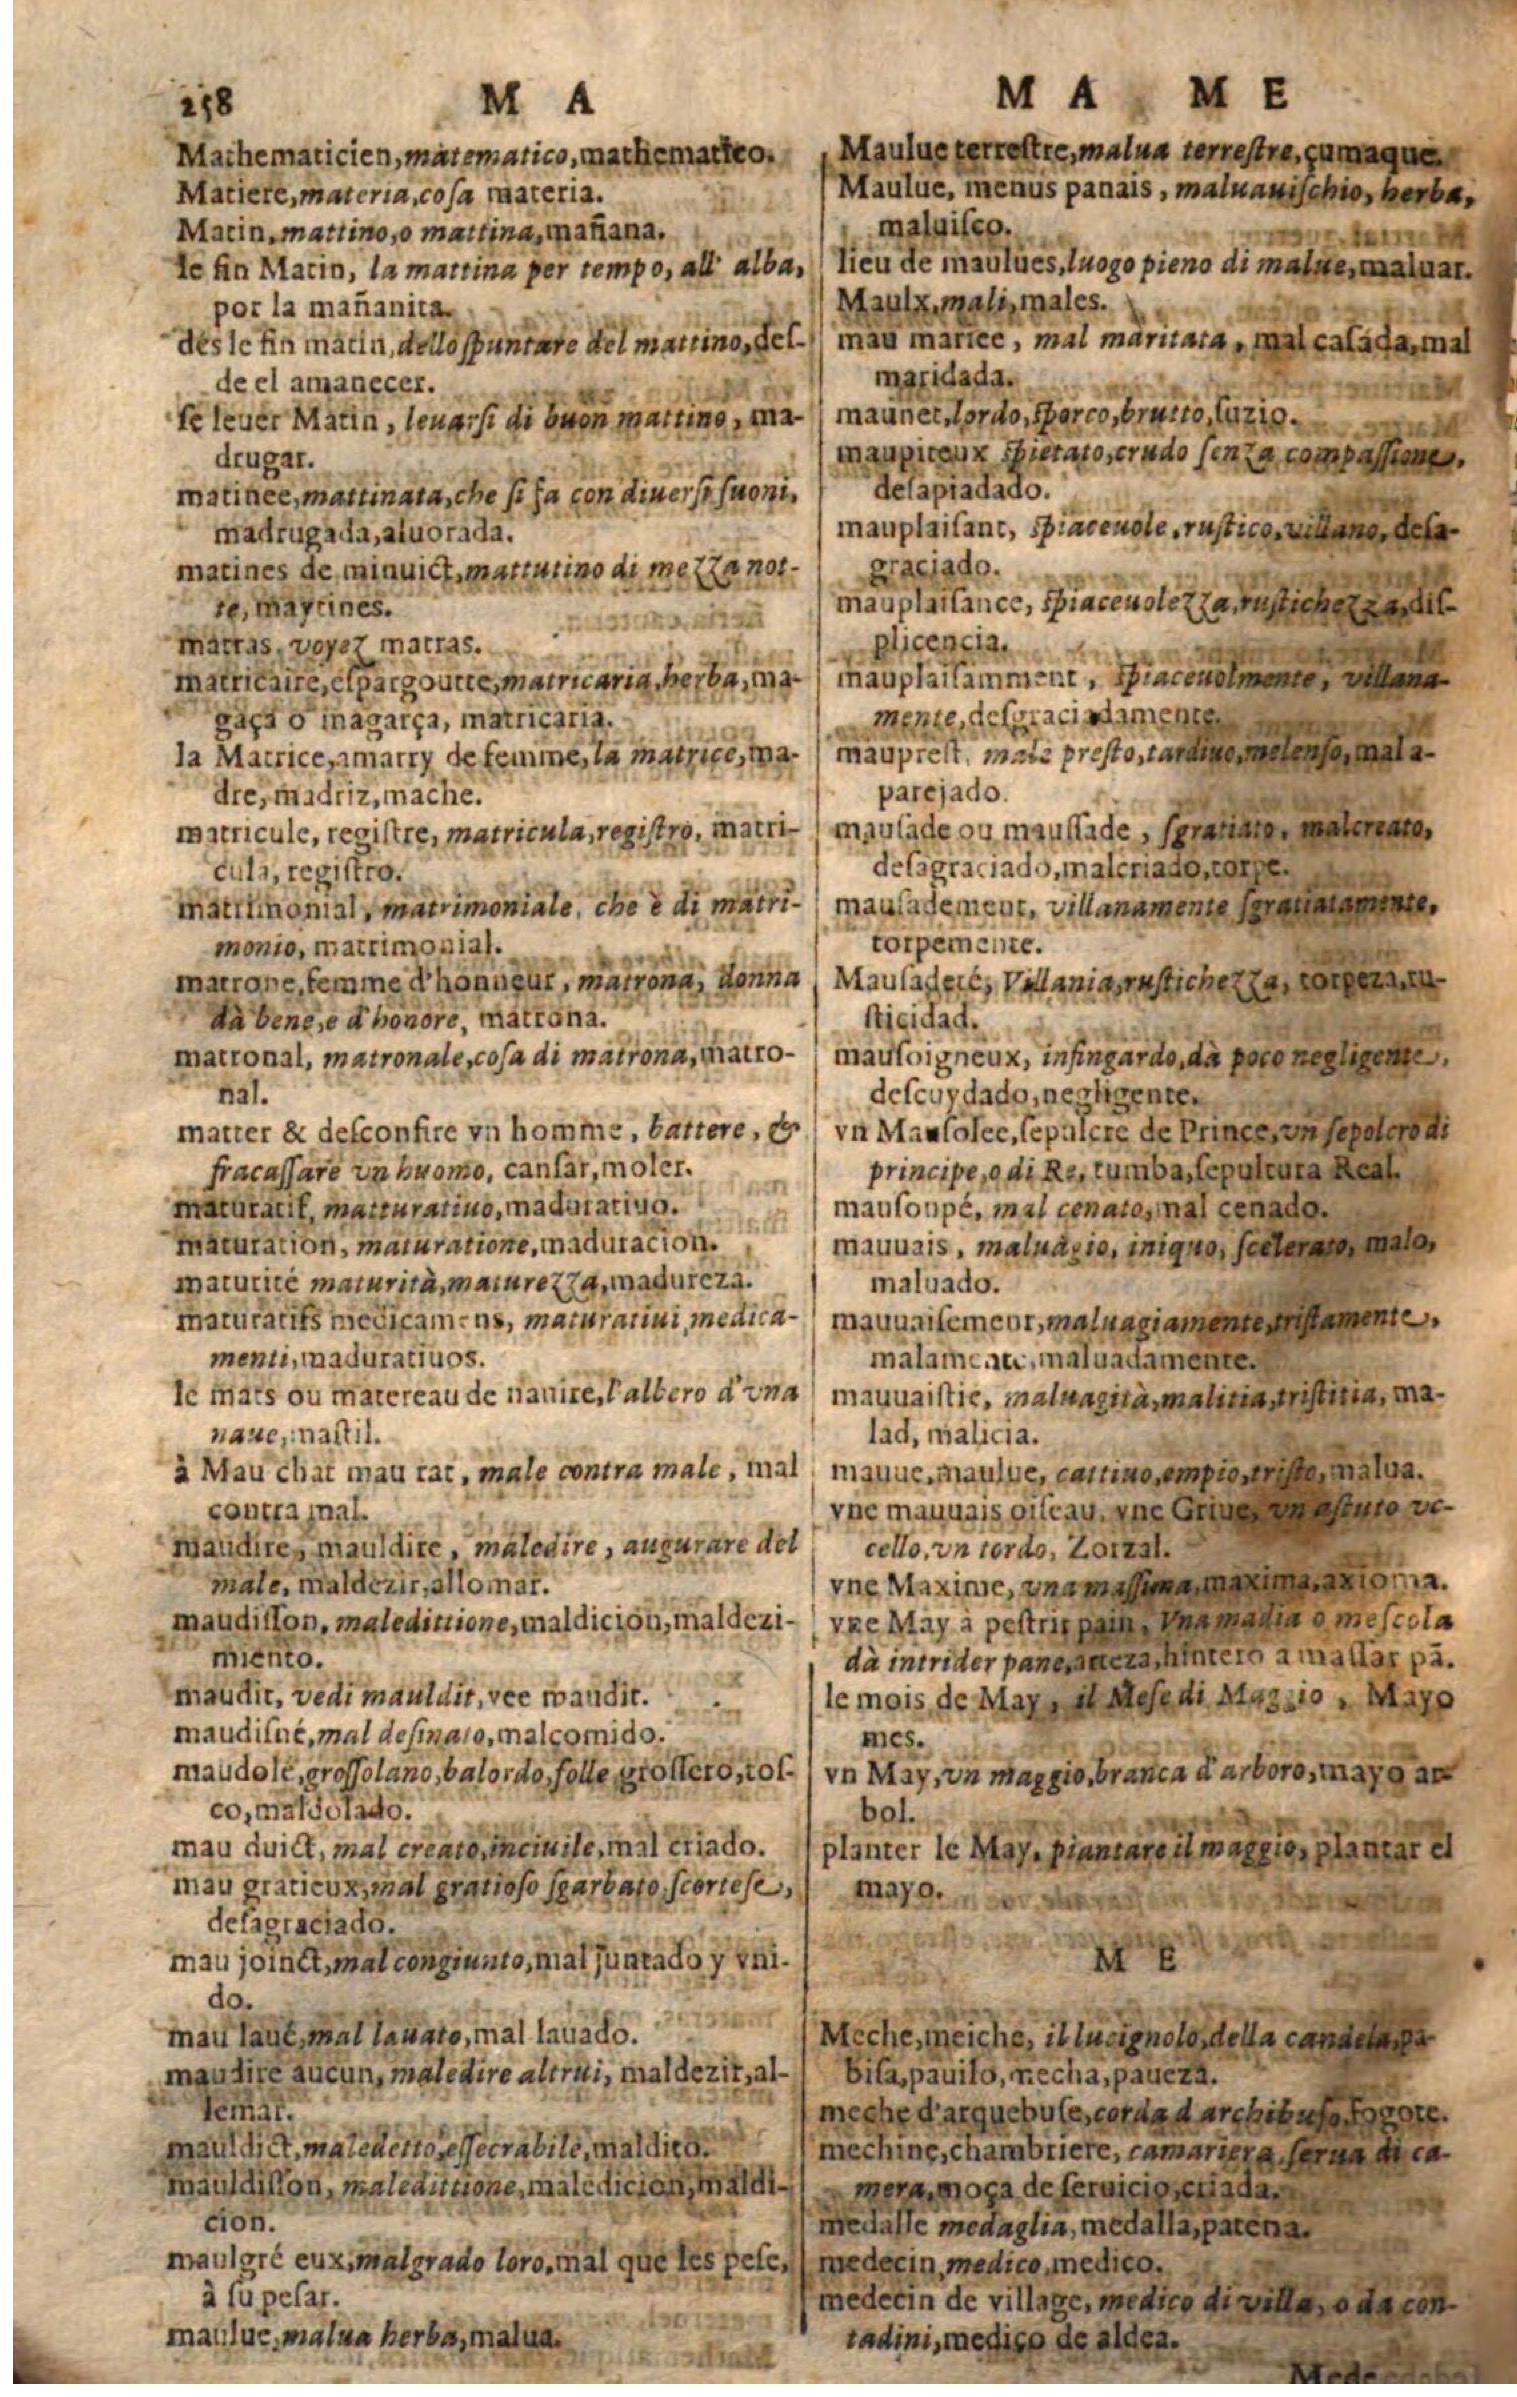 258 M A
Mathematicien, matematico, mathematico.
Matiere, materia, cosa materia.
Matin, mattino, o mattina, mañana.
le fin Matin, la mattina per tempo, all' alba,
por la mañanita.
dés le fin matin, dello spuntare del mattino, des-
de el amanecer.
se leuer Matin, leuarsi di buon mattino, ma-
drugar.
matinee, mattinata, che si fa con diuersi suoni,
madrugada, aluorada.
matines de minuict, mattutino di mezza not-
te, maytines.
matras, voyez matras.
matricaire, espargoutte, matricaria, herba, ma-
gaça o magarça, matricaria.
la Matrice, amarry de femme, la matrice, ma-
dre, madriz, mache.
matricule, registre, matricula, registro, matri-
cula, registro.
matrimonial, matrimoniale, che è di matri-
monio, matrimonial.
matrone, femme d'honneur, matrona, donna
dà bene, e d'honore, matrona.
matronal, matronale, cosa di matrona, matro-
nal.
matter & desconfire vn homme, battere, &
fracassare vn huomo, cansar, moler.
maturatif, matturatiuo, maduratiuo.
maturation, maturatione, maduracion.
maturité maturità, maturezza, madureza.
maturatifs medicamens, maturatiui medica-
menti, maduratiuos.
le mats ou matereau de nauire, l'albero d'vna
naue, mastil.
à Mau chat mau rat, male contra male, mal
contra mal.
maudire, mauldire, maledire, augurare del
male, maldezir, allomar.
maudisson, maledittione, maldicion, maldezi-
miento.
maudit, vedi mauldit, vee maudit.
maudisné, mal desinato, malcomido.
maudolé, grossolano, balordo, folle, grossero, tos-
co, maldolado.
mau duict, mal creato, inciuile, mal criado.
mau gratieux, mal gratioso sgarbato, scortese,
desagraciado.
mau joinct, mal congiunto, mal juntado y vni-
do.
mau laué, mal lauato, mal lauado.
maudire aucun, maledire altrui, maldezir, al-
lemar.
mauldict, maledetto, essecrabile, maldito.
mauldisson, maledittione, maledicion, maldi-
cion.
maulgré eux, malgrado loro, mal que les pese,
à su pesar.
maulue, malua herba, malua.
M A M E
Maulue terrestre, malua terrestre, çumaque.
Maulue, menus panais, maluauischio, herba,
maluisco.
lieu de maulues, luogo pieno di malue, maluar.
Maulx, mali, males.
mau mariee, mal maritata, mal casada, mal
maridada.
maunet, lordo, sporco, brutto, suzio.
maupiteux spietato, crudo senza compassione,
desapiadado.
mauplaisant, spiaceuole, rustico, villano, desa-
graciado.
mauplaisance, spiaceuolezza, rustichezza, dis-
plicencia.
mauplaisamment, spiaceuolmente, villana-
mente, desgraciadamente.
mauprest, male presto, tardiuo, melenso, mal a-
parejado.
mausade ou maussade, sgratiato, malcreato,
desagraciado, malcriado, torpe.
mausadement, villanamente sgratiatamente,
torpemente.
Mausadeté, Villania, rustichezza, torpeza, ru-
sticidad.
mausoigneux, infingardo, dà poco negligente,
descuydado, negligente.
vn Mausolee, sepulcre de Prince, vn sepolcro di
principe, o di Re, tumba, sepultura Real.
mausoupé, mal cenato, mal cenado.
mauuais, maluagio, iniquo, scelerato, malo,
maluado.
mauuaisement, maluagiamente, tristamente,
malamente, maluadamente.
mauuaistie, maluagità, malitia, tristitia, ma-
lad, malicia.
mauue, maulue, cattiuo, empio, tristo, malua.
vne mauuais oiseau, vne Griue, vn astuto vc-
cello, vn tordo, Zorzal.
vne Maxime, vna massima, maxima, axioma.
vne May à pestrir pain, Vna madia o mescola
dà intrider pane, arteza, hintero a massar pã.
le mois de May, il Mese di Maggio, Mayo
mes.
vn May, vn maggio, branca d'arboro, mayo ar-
bol.
planter le May, piantare il maggio, plantar el
mayo.
M E
Meche, meiche, il lucignolo, della candela, pa-
bisa, pauilo, mecha, paueza.
meche d'arquebuse, corda d archibuso, fogote.
mechine, chambriere, camariera, serua di ca-
mera, moça de seruicio, criada.
medalle medaglia, medalla, patena.
medecin, medico, medico.
medecin de village, medico di villa, o da con-
tadini, medico de aldea.
Mede